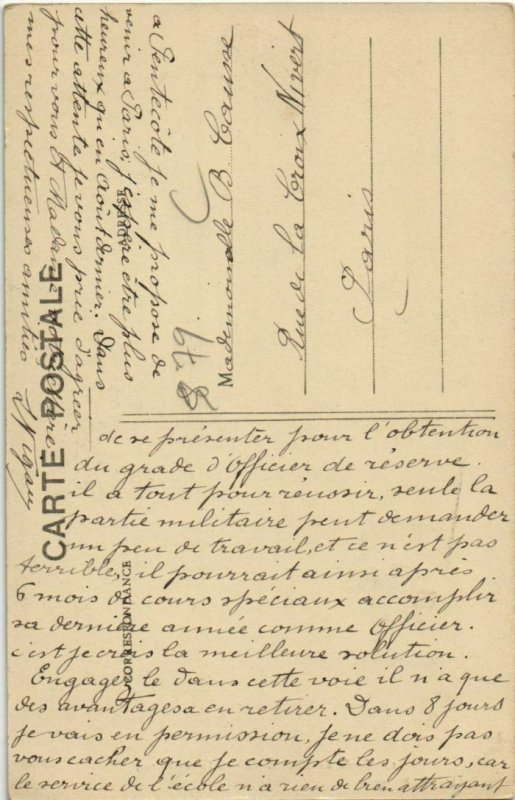 CARTE POSTALE
CORRESPONDANCE
ADRESSE
de se présenter pour l'obtention
du grade d'Officier de réserve.
il a tout pour réussir, seule la
partie militaire peut demander
un peu de travail, et ce n'est pas
terrible, il pourrait ainsi après
6 mois de cours spéciaux accomplir
sa dernière année comme Officier.
c'est je crois la meilleure solution.
Engagez le dans cette voie il n'a que
des avantages a en retirer. Dans 8 jours
je vais en permission, je ne dois pas
vous cacher que je compte les jours, car
le service de l'école n'a rien de bien attrayant
a Pentecôte je me propose de
venir a Paris, j'espère être plus
heureux qu'en Août dernier. Dans
cette attente je vous prie d'agréer
pour vous et Madame votre Mère
mes respectueuses amitiés
Mademoiselle B
Rue de La Croix Nivert
Paris